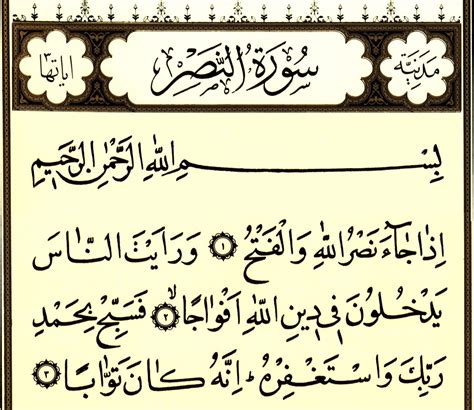 مَدَنِيَّة
سُورَةُ النَّصْرِ
اٰيَاتُهَا ٣
بِسْمِ اللّٰهِ الرَّحْمٰنِ الرَّحِيْمِ
اِذَا جَآءَ نَصْرُ اللّٰهِ وَالْفَتْحُ ۝١ وَرَاَيْتَ النَّاسَ
يَدْخُلُوْنَ فِيْ دِيْنِ اللّٰهِ اَفْوَاجًا ۝٢ فَسَبِّحْ بِحَمْدِ
رَبِّكَ وَاسْتَغْفِرْهُ ؕ اِنَّهٗ كَانَ تَوَّابًا ۝٣